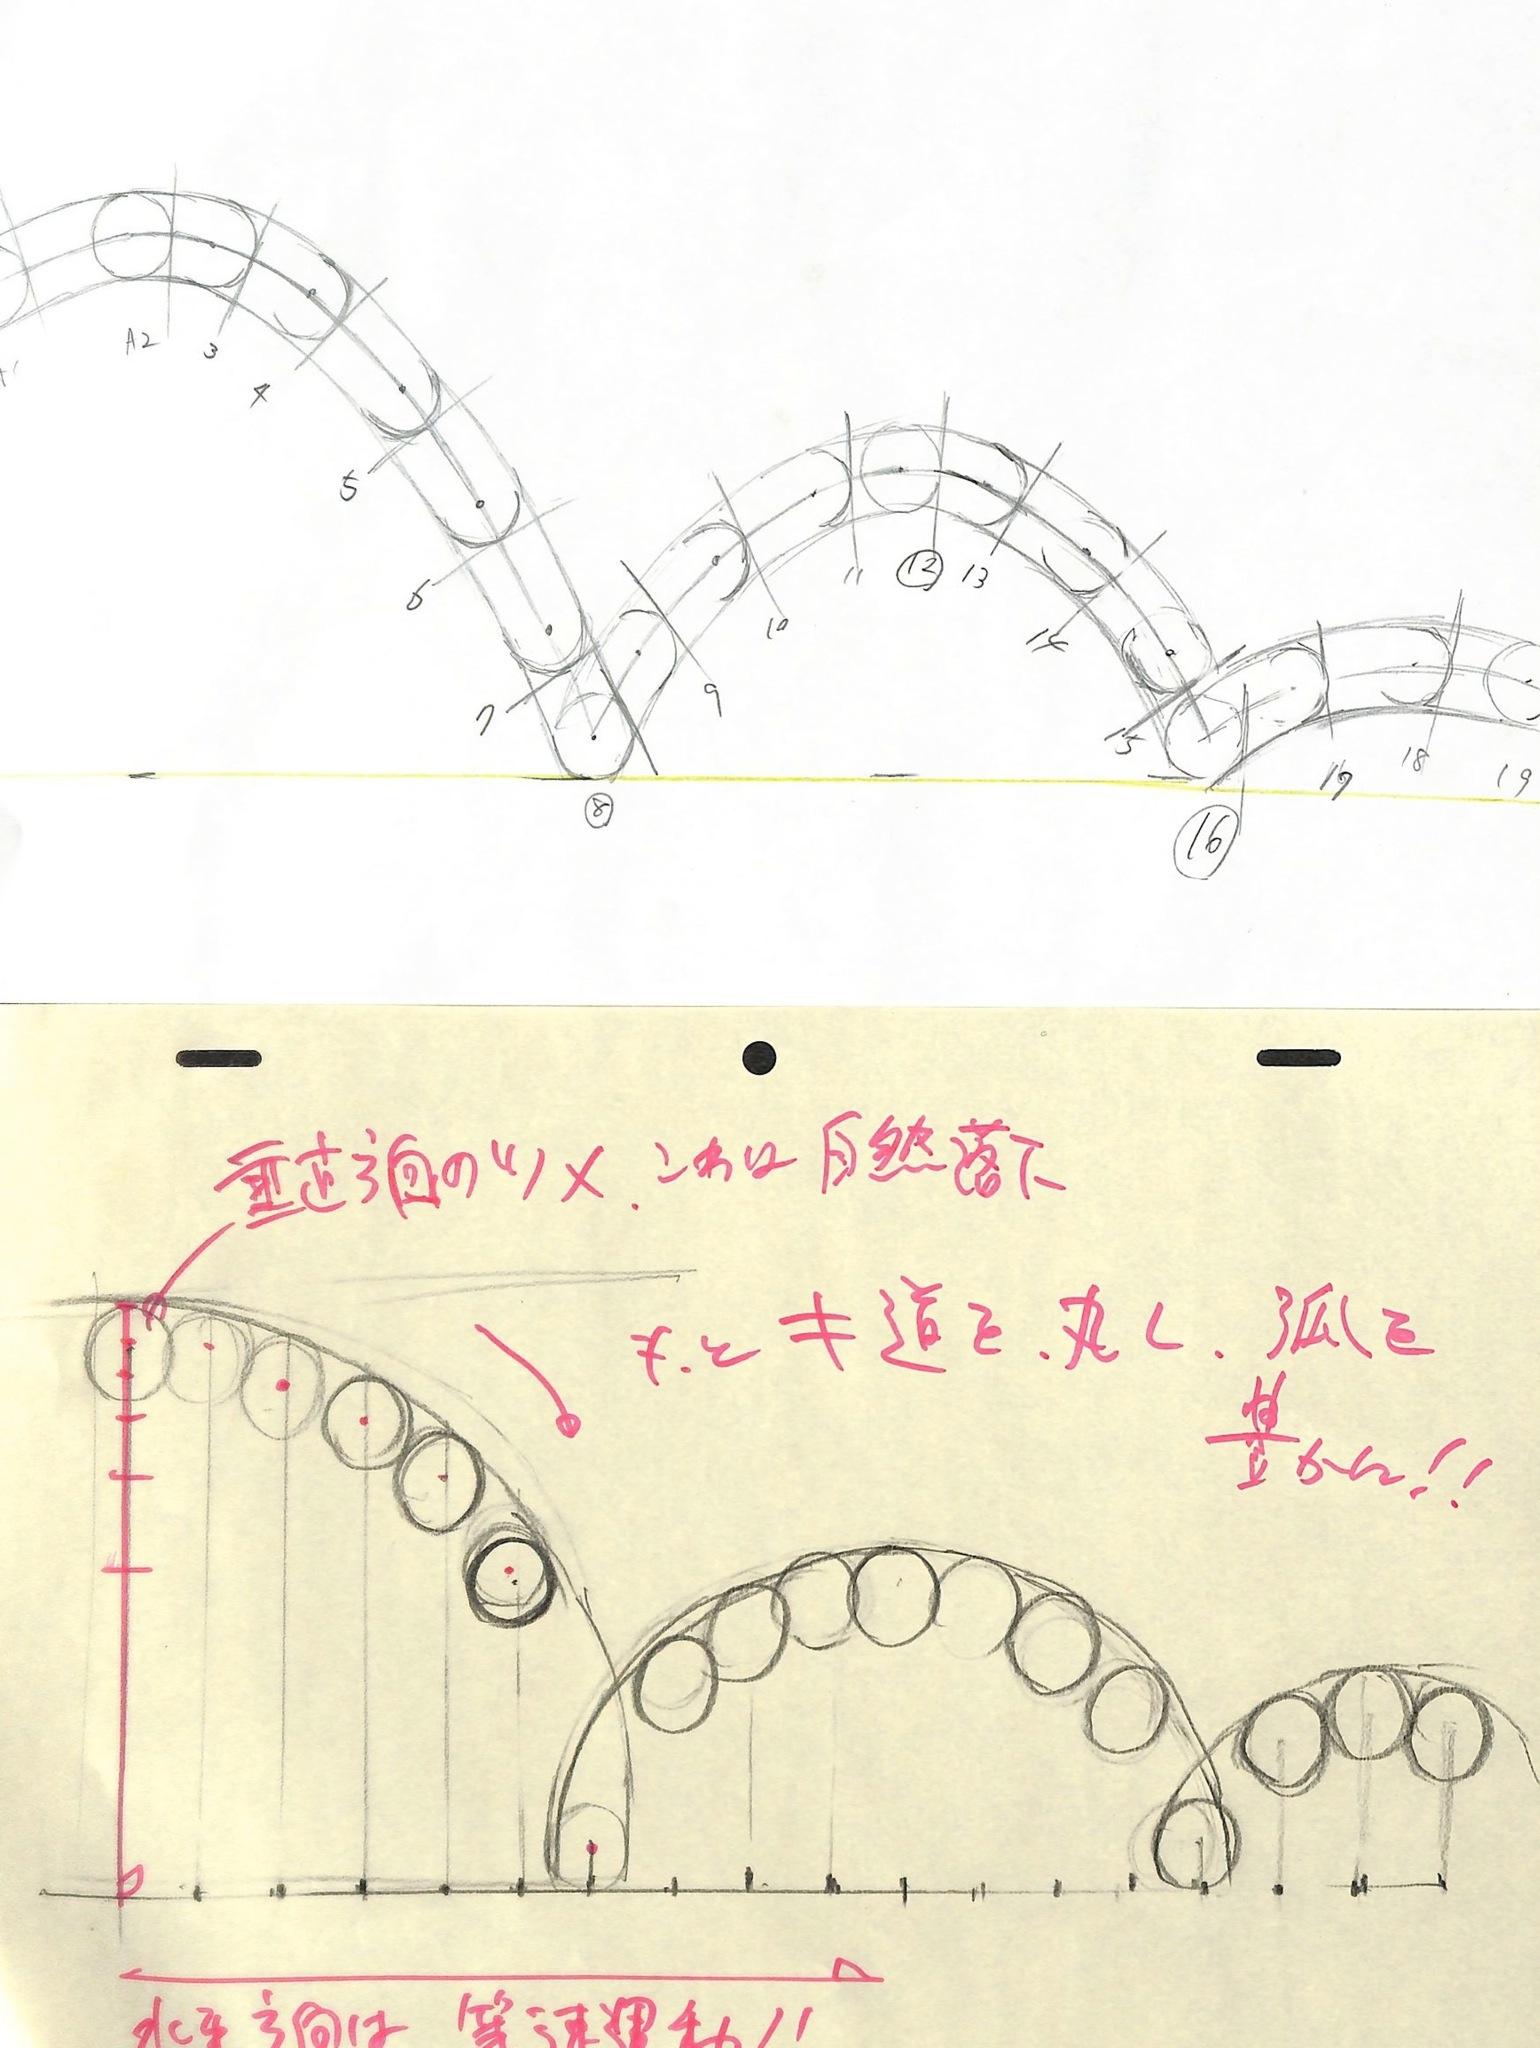 A2
3
4
5
6
7
⑧
9
10
11
⑫
13
14
15
⑯
17
18
19
垂直方向のツメ.これは自然落下
キ道を、丸く、弧を
豊かに!!
水平方向は等速運動!!